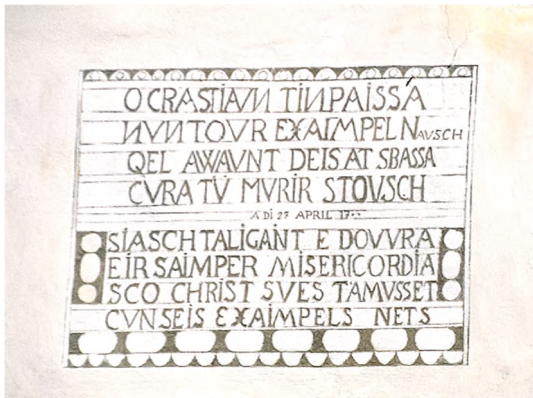 O CRASTIAUN TINPAISSA
NUN TOUR EXAIMPEL NAUSCH
QEL AVVAUNT DEIS AT SBASSA
CURA TÜ MURIR STOUSCH
A DI 23 APRIL
SIASCH TALIGANT E DOVVRA
EIR SAIMPER MISERICORDIA
SCO CHRIST SVES TAMUSSET
CUNSEIS EXAIMPELS NETS